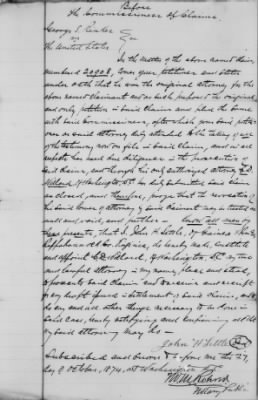 Before
the Commissioners of Claims.
George S.
vs
the United States
In the matter of the above named Claim
numbered 20208, comes your petitioner and states
under oath that he was the original attorney for
the above named Claimant and as such prepared the original
and only petition in said Claim and filed the same
with said Commissioners, after which your said petitioner
as said attorney duly attended to the taking of all
of the testimony now on file in said Claim, and in all
respects has used due diligence in the prosecution of
said Claim, and through his only authorized attorney
of Washington, DC has duly submitted said Claim
as closed, and therefore prays that the revocation of
his said power of attorney by said Claimant may be
and void, and further - Know all men by
these presents, that I, John H Settle, of
Rappahannock Co. Virginia, do hereby make, constitute
and appoint of Washington, DC my true
and lawful attorney in my name, place and stead,
to prosecute said Claim and to receive and receipt
for my draft in settlement of said Claim, and to
do any and all other things necessary to be done in
said case, hereby ratifying and confirming all that
my said attorney may do -
John H Settle
Subscribed and sworn to before me the 27
day of October, 1874, at Washington, D.C.
Notary Public